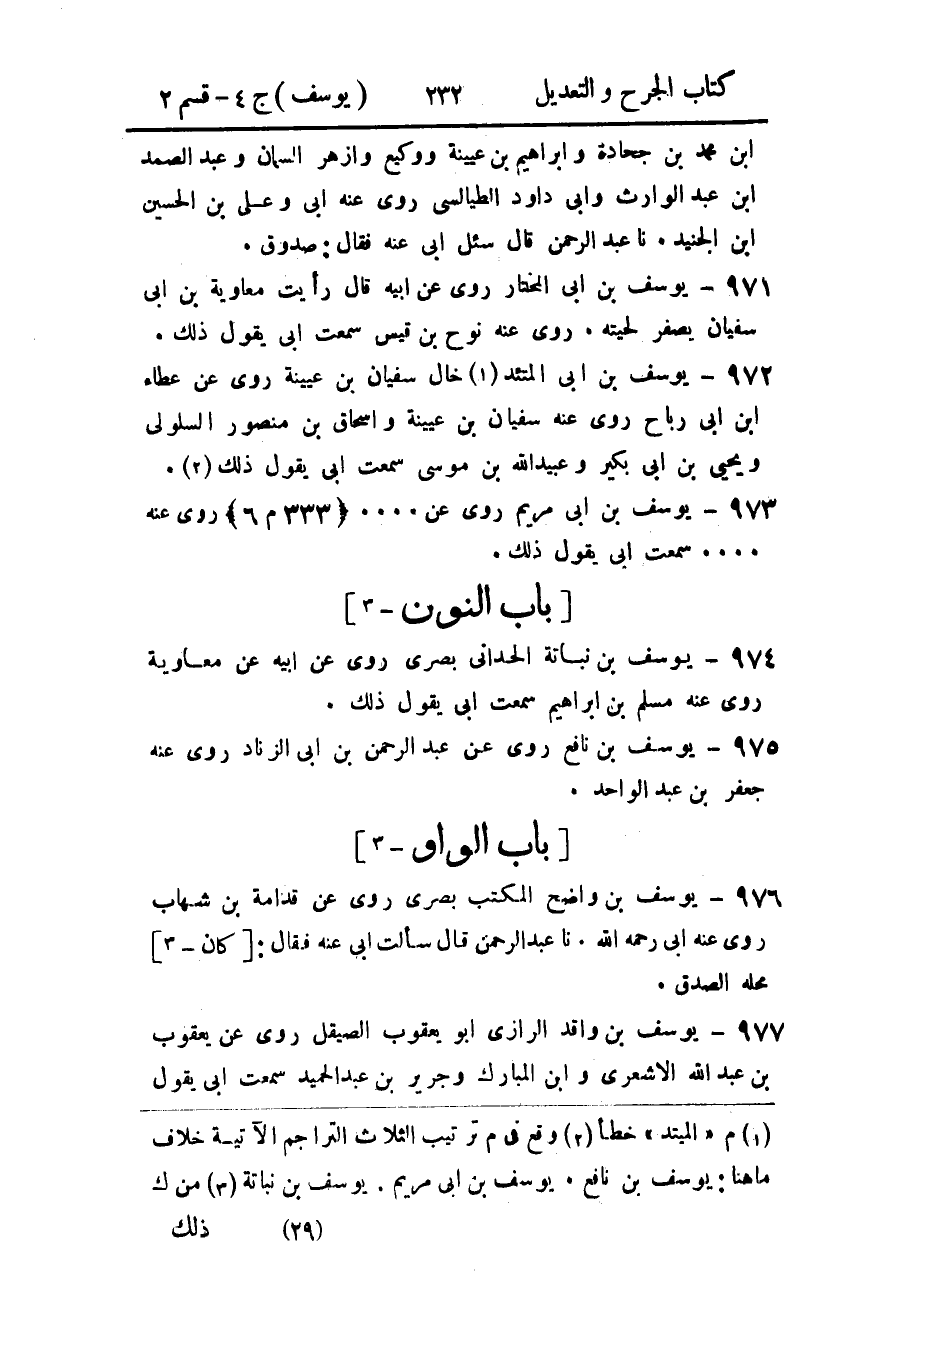 كتاب الجرح و التعديل ٢٣٢ (يوسف) ج ٤ - قسم ٢
ابن محمد بن جحادة و ابراهيم بن عيينة ووكيع وازهر السمان و عبد الصمد
ابن عبد الوارث وابى داود الطيالسى روى عنه ابى و على بن الحسين
ابن الجنيد ٠ نا عبد الرحمن قال سئل ابى عنه فقال: صدوق ٠
٩٧١ - يوسف بن ابى المختار روى عن ابيه قال رأيت معاوية بن ابى
سفيان يصفر لحيته ٠ روى عنه نوح بن قيس سمعت ابى يقول ذلك ٠
٩٧٢ - يوسف بن ابى المتئد (١) خال سفيان بن عيينة روى عن عطاء
ابن ابى رباح روى عنه سفيان بن عيينة و اسحاق بن منصور السلولى
و يحيى بن ابى بكير و عبيدالله بن موسى سمعت ابى يقول ذلك (٢) ٠
٩٧٣ - يوسف بن ابى مريم روى عن ٠٠٠٠ {٣٣٣ م ٦} روى عنه
٠٠٠٠ سمعت ابى يقول ذلك ٠
[باب النون - ٣]
٩٧٤ - يوسف بن نباتة الحدانى بصرى روى عن ابيه عن معاوية
روى عنه مسلم بن ابراهيم سمعت ابى يقول ذلك ٠
٩٧٥ - يوسف بن نافع روى عن عبد الرحمن بن ابى الزناد روى عنه
جعفر بن عبد الواحد ٠
[باب الواو - ٣]
٩٧٦ - يوسف بن واضح المكتب بصرى روى عن قدامة بن شهاب
روى عنه ابى رحمه الله ٠ نا عبدالرحمن قال سألت ابى عنه فقال: [كان - ٣]
محله الصدق ٠
٩٧٧ - يوسف بن واقد الرازى ابو يعقوب الصيقل روى عن يعقوب
بن عبد الله الاشعرى و ابن المبارك وجرير بن عبدالحميد سمعت ابى يقول
(١) م «المبتد» خطأ (٢) وقع فى م ترتيب الثلاث التراجم الآتية خلاف
ماهنا: يوسف بن نافع ٠ يوسف بن ابى مريم . يوسف بن نباتة (٣) من ك
(٢٩) ذلك